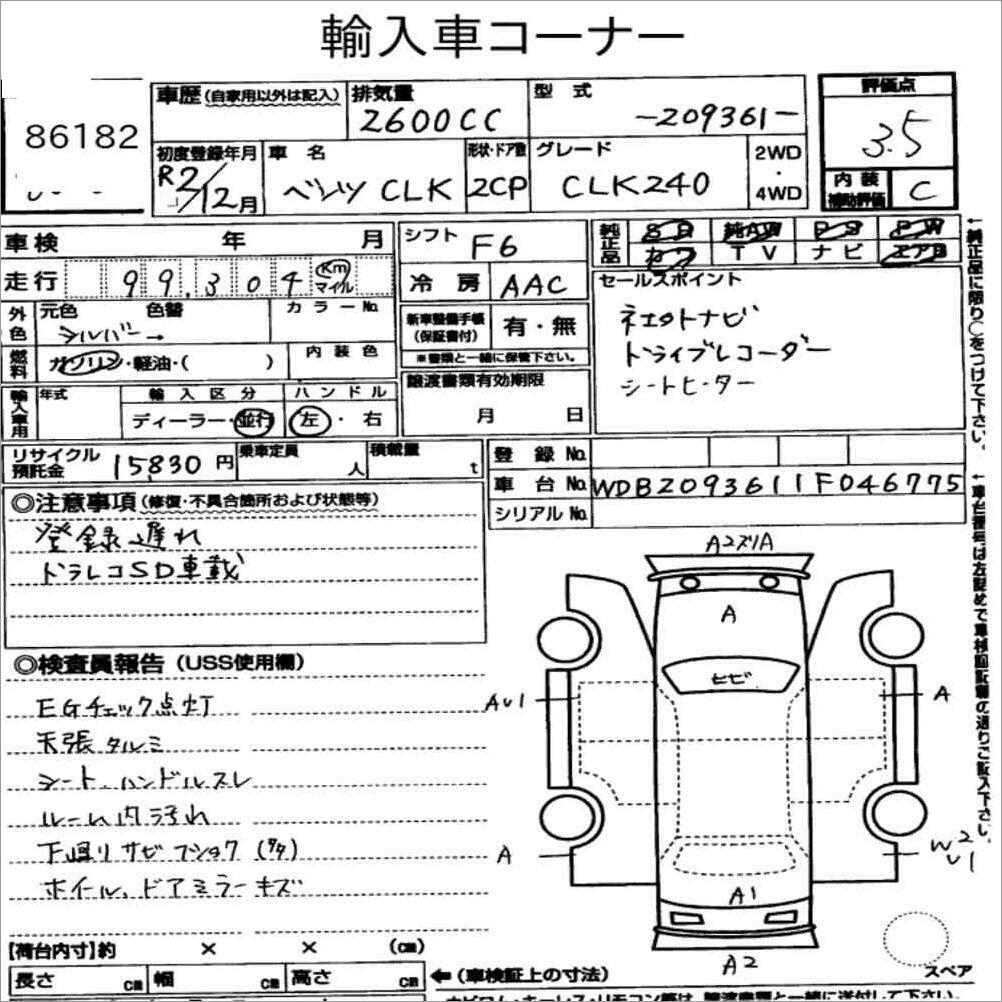 輸入車コーナー
86182
車歴(自家用以外は記入) 排気量 2600CC
型式 -209361-
評価点 3.5
初度登録年月 R2/12月
車名 ベンツ CLK
形状・ドア数 2CP
グレード CLK240
2WD・4WD
内装補助評価 C
車検 年 月
シフト F6
純正品 SR 純AW PS PW
カワ TV ナビ エアB
走行 99,304 Km マイル
冷房 AAC
セールスポイント
外色 元色 シルバー→ 色替 カラーNo.
新車整備手帳(保証書付) 有・無
※書類と一緒に保管下さい。
ネエタトナビ
ドライブレコーダー
シートヒーター
燃料 ガソリン・軽油・( ) 内装色
譲渡書類有効期限
月 日
輸入車用 年式 輸入区分 ハンドル
ディーラー・並行 左・右
←純正品に限り○をつけて下さい。
リサイクル預託金 15,830円 乗車定員 人 積載量 t
登録No.
車台No. WDB2093611F046775
シリアルNo.
←車台番号は左詰めで車検証記載の通りご記入下さい。
◎注意事項(修復・不具合箇所および状態等)
登録遅れ
ドラレコSD車載
◎検査員報告(USS使用欄)
EGチェック点灯
天張タルミ
シート、ハンドルスレ
ルーム内汚れ
下廻りサビフショク
ホイール、ドアミラーキズ
A2ズリA
A
ヒビ
AU1
A
A
W2
U1
A1
A2
スペア
【荷台内寸】約 × × (cm)
長さ cm 幅 cm 高さ cm
←(車検証上の寸法)